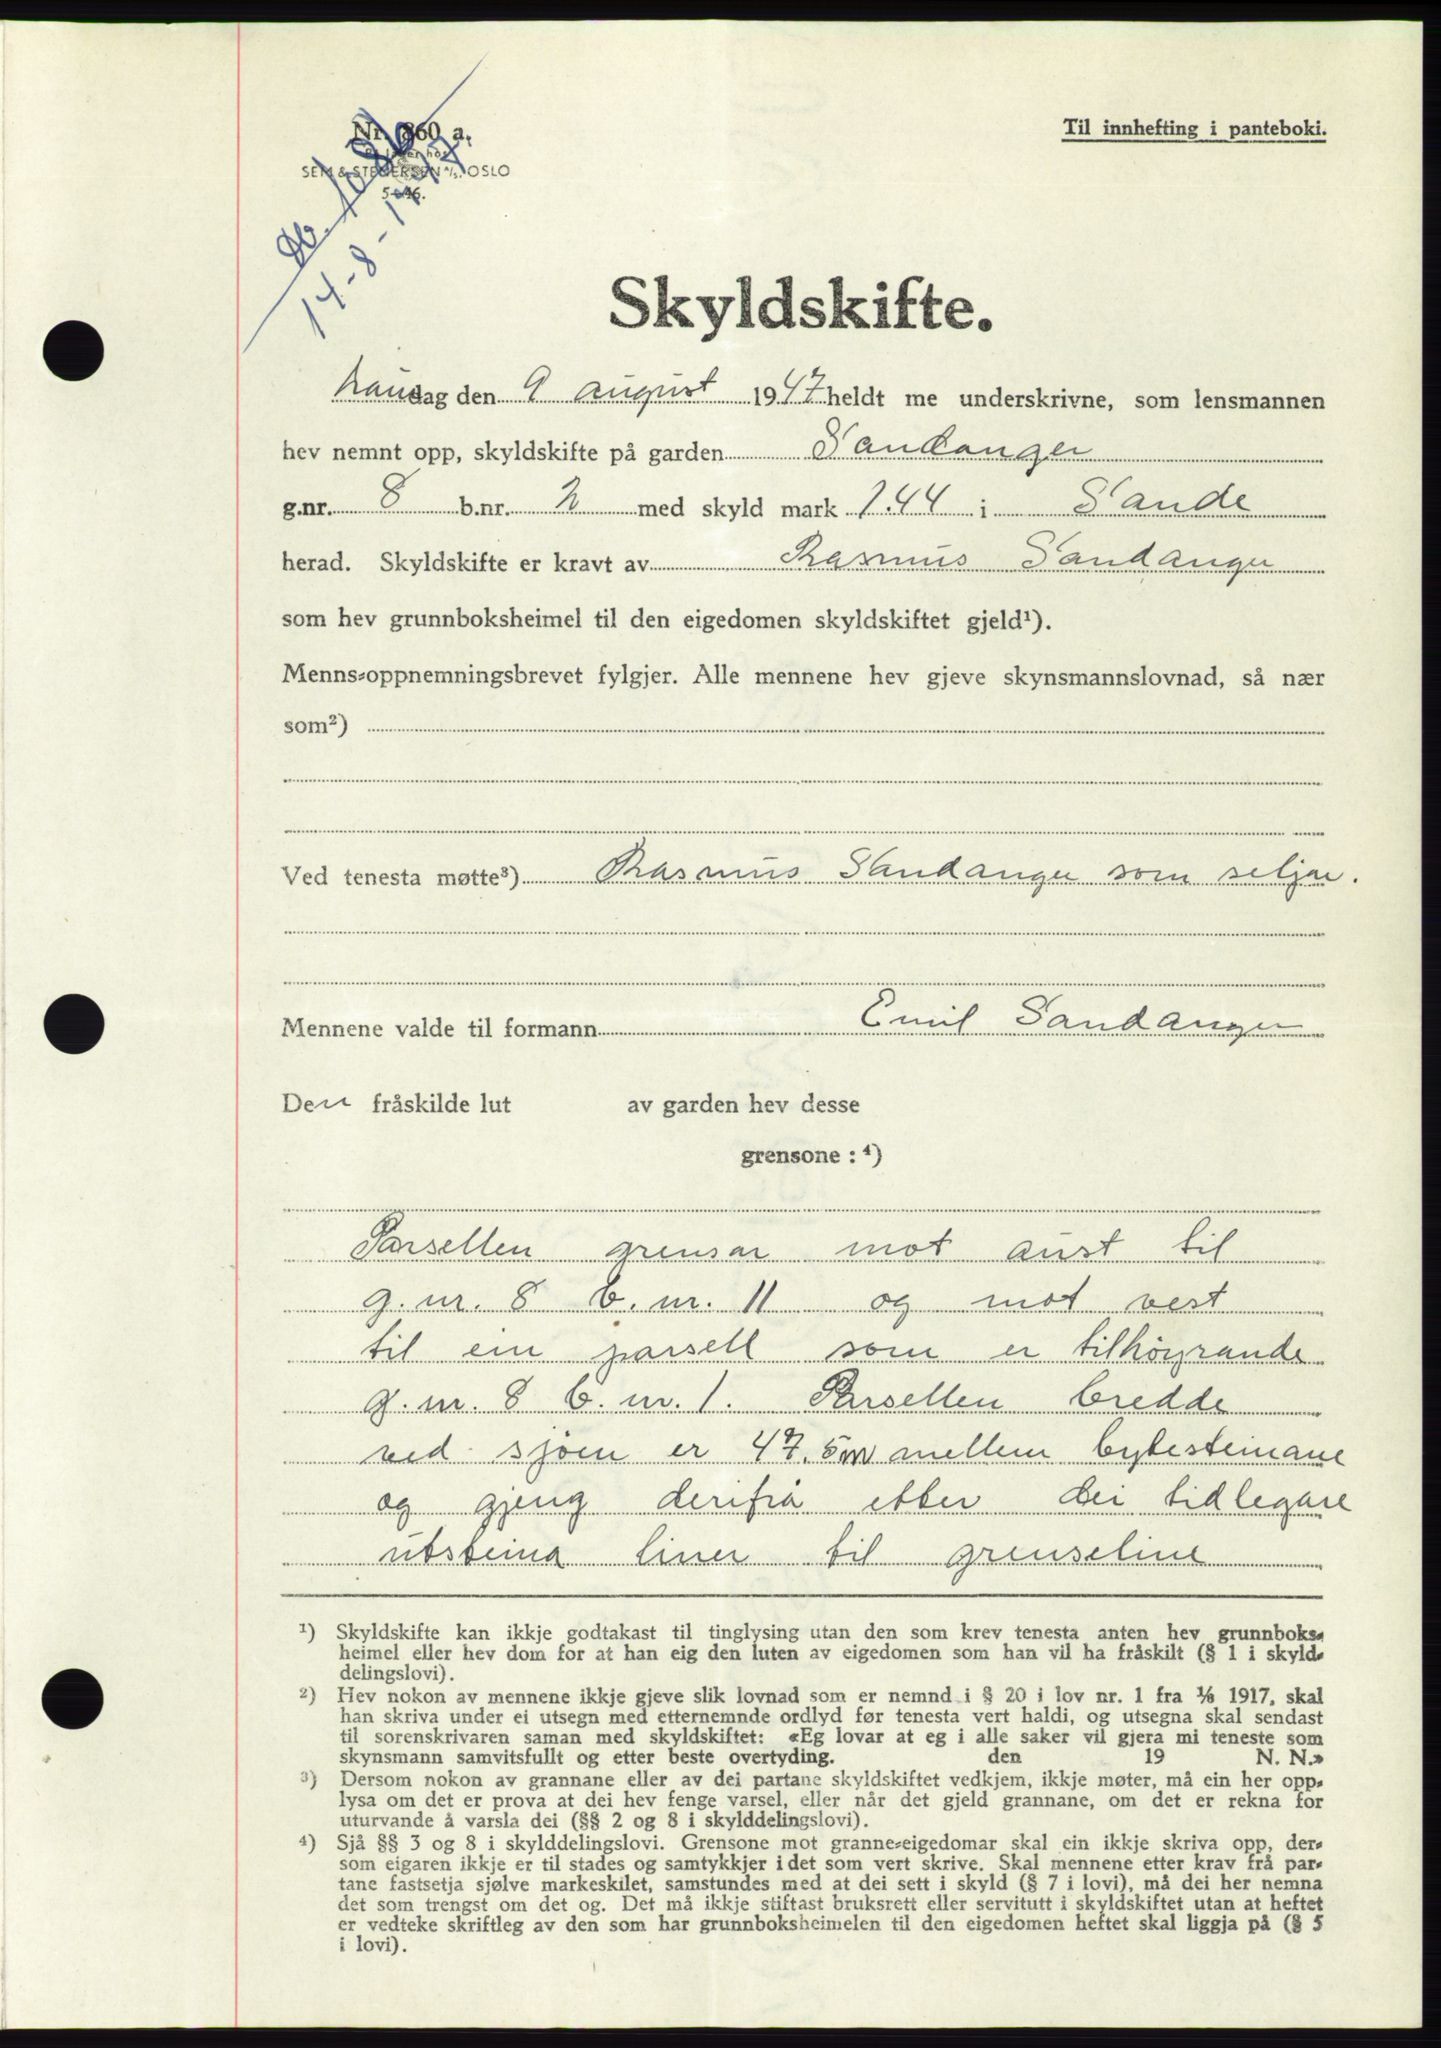 Nr. 860 a.
Til innhefting i panteboki.
SEM & STENERSEN A/S, OSLO
5-46.
Db. 1086
14-8-1947
Skyldskifte.
Laurdag den 9 august 1947 heldt me underskrivne, som lensmannen
hev nemnt opp, skyldskifte på garden Sandanger
g.nr. 8 b.nr. 2 med skyld mark 1.44 i Sande
herad. Skyldskifte er kravt av Rasmus Sandanger
som hev grunnboksheimel til den eigedomen skyldskiftet gjeld¹).
Menns-oppnemningsbrevet fylgjer. Alle mennene hev gjeve skynsmannslovnad, så nær
som²)
Ved tenesta møtte³) Rasmus Sandanger som seljar.
Mennene valde til formann Emil Sandanger
Den fråskilde lut av garden hev desse
grensone : ⁴)
Parsellen grensar mot aust til
g.nr. 8 b.nr. 11 og mot vest
til ein parsell som er tilhöyrande
g.nr. 8 b.nr. 1. Parsellen bredde
ved sjøen er 47.5m mellem bytesteinane
og gjeng derifrå etter dei tidlegare
utsteina liner til grenseline
¹) Skyldskifte kan ikkje godtakast til tinglysing utan den som krev tenesta anten hev grunnboks-
heimel eller hev dom for at han eig den luten av eigedomen som han vil ha fråskilt (§ 1 i skyld-
delingslovi).
²) Hev nokon av mennene ikkje gjeve slik lovnad som er nemnd i § 20 i lov nr. 1 fra 1/6 1917, skal
han skriva under ei utsegn med etternemnde ordlyd før tenesta vert haldi, og utsegna skal sendast
til sorenskrivaren saman med skyldskiftet: «Eg lovar at eg i alle saker vil gjera mi teneste som
skynsmann samvitsfullt og etter beste overtyding. den 19 N. N.»
³) Dersom nokon av grannane eller av dei partane skyldskiftet vedkjem, ikkje møter, må ein her opp-
lysa om det er prova at dei hev fenge varsel, eller når det gjeld grannane, om det er rekna for
uturvande å varsla dei (§§ 2 og 8 i skylddelingslovi).
⁴) Sjå §§ 3 og 8 i skylddelingslovi. Grensone mot granne-eigedomar skal ein ikkje skriva opp, der-
som eigaren ikkje er til stades og samtykkjer i det som vert skrive. Skal mennene etter krav frå par-
tane fastsetja sjølve markeskilet, samstundes med at dei sett i skyld (§ 7 i lovi), må dei her nemna
det som trengst om det og. Det må ikkje stiftast bruksrett eller servitutt i skyldskiftet utan at heftet
er vedteke skriftleg av den som har grunnboksheimelen til den eigedomen heftet skal liggja på (§ 5
i lovi).